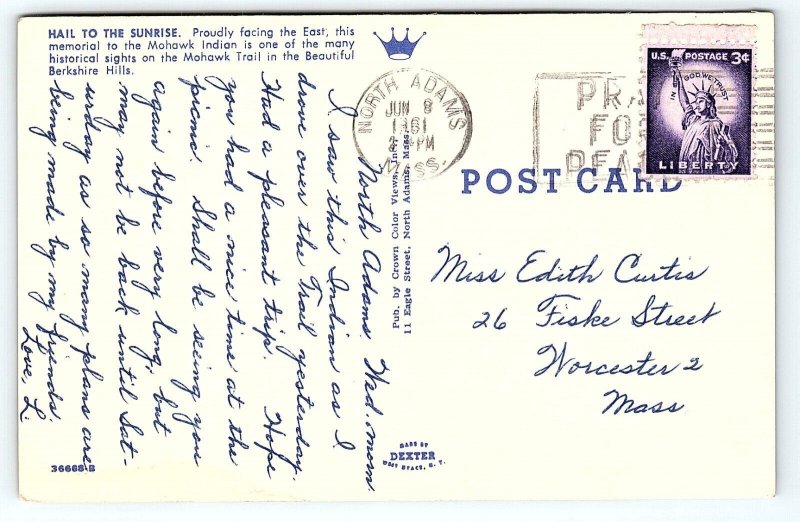 HAIL TO THE SUNRISE. Proudly facing the East, this
memorial to the Mohawk Indian is one of the many
historical sights on the Mohawk Trail in the Beautiful
Berkshire Hills.
North Adams. Wed. morn.
I saw this Indian as I
drove over the Trail yesterday.
Had a pleasant trip. Hope
you had a nice time at the
picnic. Shall be seeing you
again before very long, but
may not be back until Sat-
urday as so many plans are
being made by my friends.
Love, L.
36668-B
Pub. by Crown Color Views, Inc.
11 Eagle Street, North Adams, Mass.
MADE BY
DEXTER
WEST NYACK, N. Y.
NORTH ADAMS
JUN 8
1961
PM
MASS.
PRA
FO
PEA
U.S. POSTAGE 3¢
IN GOD WE TRUST
LIBERTY
POST CARD
Miss Edith Curtis
26 Fiske Street
Worcester 2
Mass